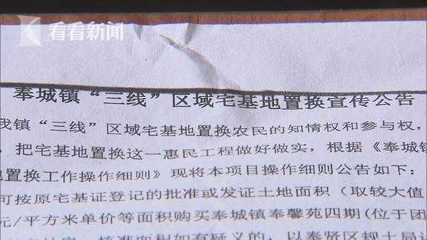 看看新闻
奉城镇“三线”区域宅基地置换宣传公告
我镇“三线”区域宅基地置换农民的知情权和参与权，
，把宅基地置换这一惠民工程做好做实，根据《奉城镇
地置换工作操作细则》现将本项目操作细则公告如下：
可按原宅基证登记的批准或发证土地面积（取较大值
元/平方米单价等面积购买奉城镇奉馨苑四期(位于团
，核准面积如有疑义的，以奉贤区规土局